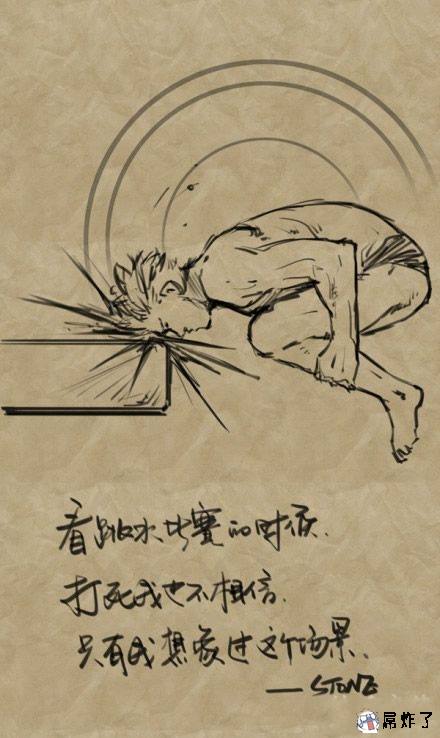 看跳水比賽的时候.
打死我也不相信.
只有我想象过这个场景.
—STONE
屌炸了